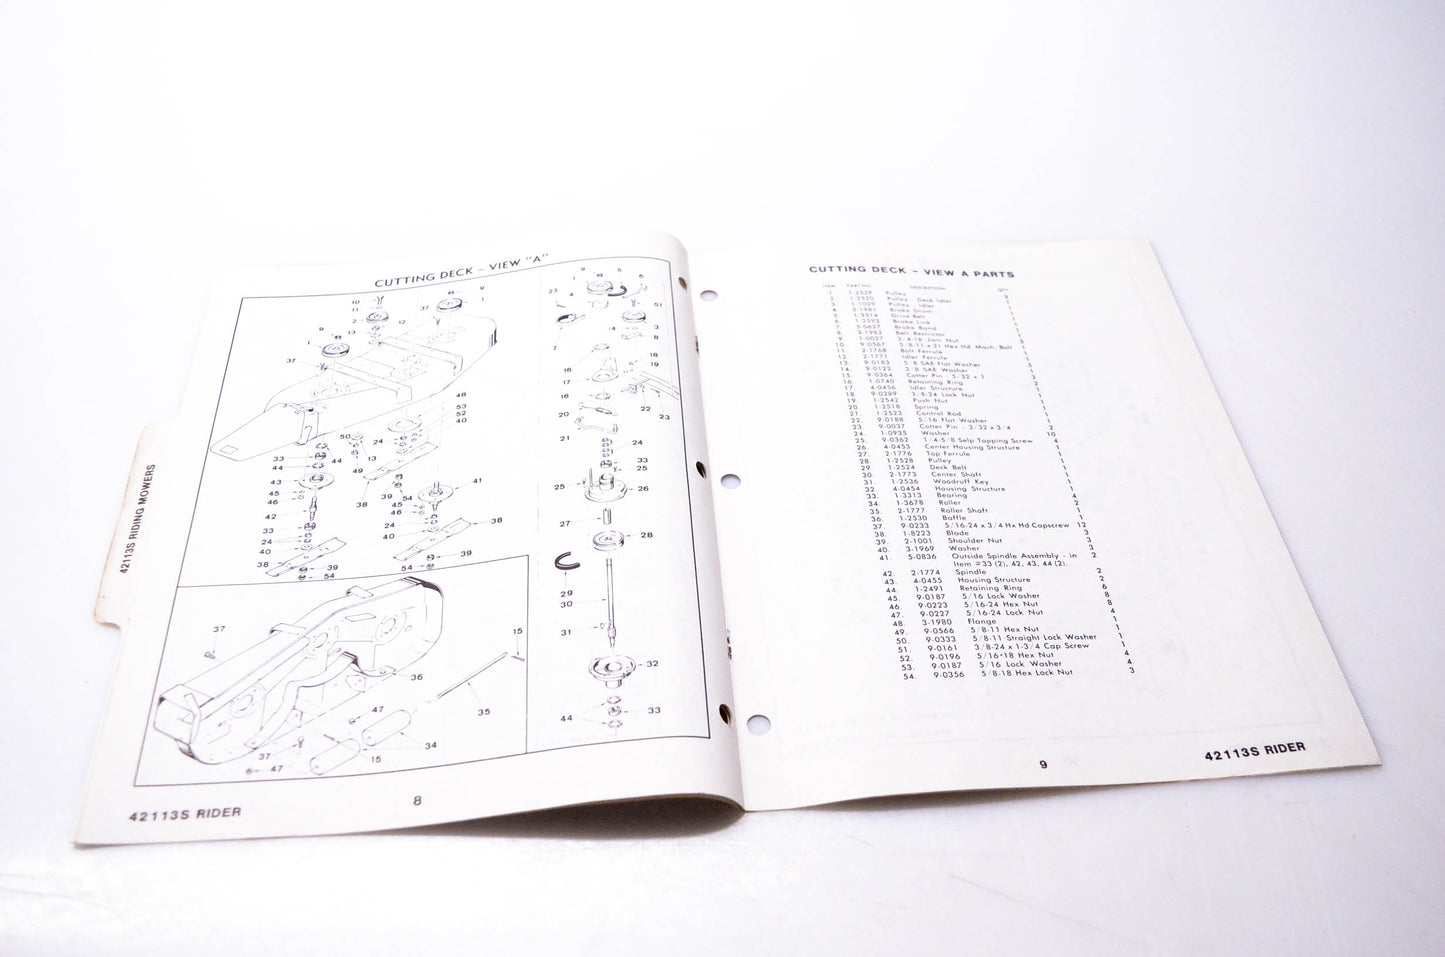 42113S RIDING MOWERS
CUTTING DECK - VIEW "A"
42113S RIDER
8
CUTTING DECK - VIEW A PARTS
ITEM PART NO. DESCRIPTION QTY.
1. 1-2529 Pulley 3
2. 1-2520 Pulley - Deck Idler
3. 1-1029 Pulley - Idler
4. 3-1981 Brake Drum
5. 1-3314 Drive Belt
6. 1-2592 Brake Link
7. 5-0627 Brake Band
8. 3-1982 Belt Restrictor
9. 1-0027 3/4-16 Jam Nut
10. 9-0367 5/8-11 x 21 Hex Hd Mach. Bolt 1
11. 2-1768 Bolt Ferrule 1
12. 2-1771 Idler Ferrule 1
13. 9-0183 5/8 SAE Flat Washer 3
14. 9-0122 3/8 SAE Washer 1
15. 9-0364 Cotter Pin - 5/32 x 1 2
16. 1-0740 Retaining Ring 2
17. 4-0456 Idler Structure 1
18. 9-0289 3/8-24 Lock Nut 1
19. 1-2542 Push Nut 1
20. 1-2518 Spring 1
21. 1-2523 Control Rod 1
22. 9-0188 5/16 Flat Washer 1
23. 9-0037 Cotter Pin - 3/32 x 3/4 2
24. 1-0935 Washer 10
25. 9-0362 1/4-5/8 Self Tapping Screw 4
26. 4-0453 Center Housing Structure 1
27. 2-1776 Top Ferrule 1
28. 1-2528 Pulley 1
29. 1-2524 Deck Belt 1
30. 2-1773 Center Shaft 1
31. 1-2536 Woodruff Key 1
32. 4-0454 Housing Structure 1
33. 1-3313 Bearing 4
34. 1-3678 Roller 2
35. 2-1777 Roller Shaft 1
36. 1-2530 Baffle 1
37. 9-0233 5/16-24 x 3/4 Hx Hd Capscrew 12
38. 1-8223 Blade 3
39. 2-1001 Shoulder Nut 3
40. 3-1969 Washer 3
41. 5-0836 Outside Spindle Assembly - in 2
Item #33 (2), 42, 43, 44 (2).
42. 2-1774 Spindle 2
43. 4-0455 Housing Structure 2
44. 1-2491 Retaining Ring 6
45. 9-0187 5/16 Lock Washer 8
46. 9-0223 5/16-24 Hex Nut 8
47. 9-0227 5/16-24 Lock Nut 4
48. 3-1980 Flange 1
49. 9-0566 5/8-11 Hex Nut 1
50. 9-0333 5/8-11 Straight Lock Washer 1
51. 9-0161 3/8-24 x 1-3/4 Cap Screw 1
52. 9-0196 5/16-18 Hex Nut 4
53. 9-0187 5/16 Lock Washer 4
54. 9-0356 5/8-18 Hex Lock Nut 3
9
42113S RIDER